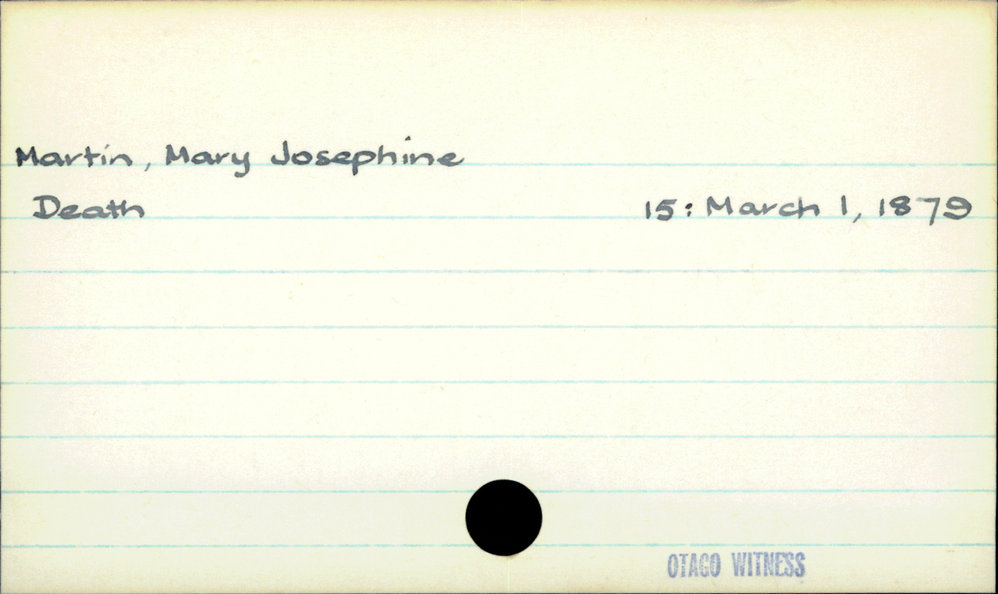 Martin, Mary Josephine
Death 15: March 1, 1879
OTAGO WITNESS